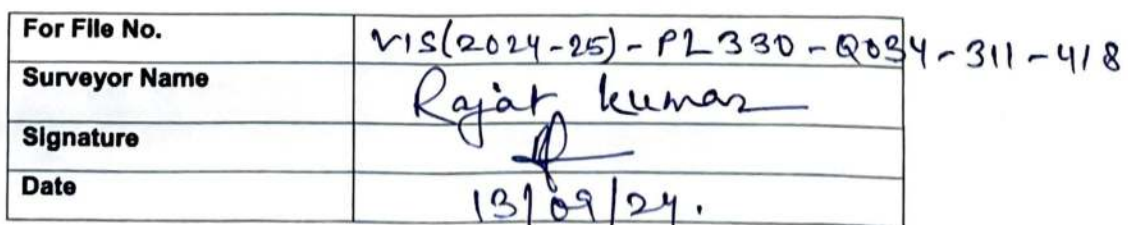 For File No. VIS(2024-25)-PL330-Q034-311-418
Surveyor Name Rajat kumar
Signature
Date 13/09/24.